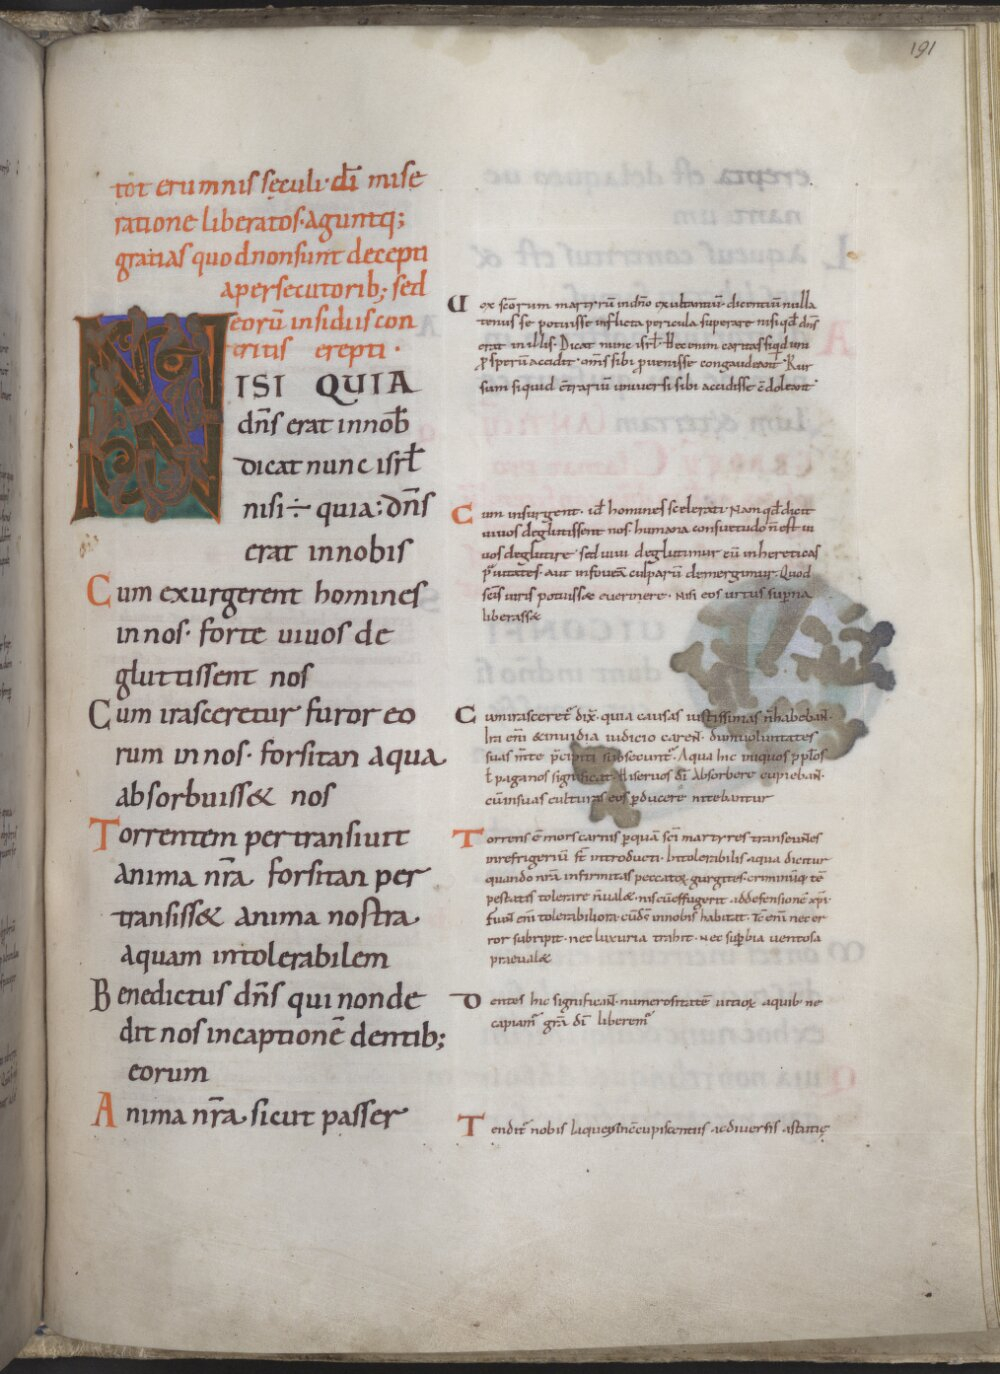 191
tot erumnis sęculi· dī mise
ratione liberatos· aguntq;
gratias quod non sunt decepti
a persecutorib; sed
eorū insidiis con
tritis erepti·
NISI QUIA
dn̄s erat in nob̄
Dicat nunc isrł
nisi ÷ quia: dn̄s
erat in nobis
Cum exurgerent homines
in nos· forte uiuos de
gluttissent nos
Cum irasceretur furor eo
rum in nos· forsitan aqua
absorbuiss& nos
Torrentem pertransiuit
anima nr̄a forsitan per
transiss& anima nostra
aquam intolerabilem
Benedictus dn̄s qui non de
dit nos in captionē dentib;
eorum
Anima nr̄a sicut passer
Uox sc̄orum martyrū in dn̄o exultantiū· dicentiū nulla
tenus se potuisse inflicta pericula superare nisi qđ dn̄s
erat in illis· Dicat nunc isrł· Hec enim caritas siqđ uni
ꝓsperū accidit· om̄s sibi ꝓuenisse congaudeant· Rur
sum siquid c̄trariū uniuersi sibi accidisse c̄doleant·
Cum insurgent· id homines scelerati· Nam qđ dicit
uiuos deglutissent nos· humana consuetudo n̄ est ui
uos deglutire· sed uiui deglutimur cū in hereticas
prauitates· aut in foueā culparū demergimur· Quod
sc̄is uiris potuiss& euenire· Nisi eos uirtus sup̄na
liberass&
Cum irasceret᷑ dix̄· quia causas iustissimas n̄ habeban̄·
Ira eni᷑ & inuidia iudicio caren̄· dum uoluntates
suas m̄te p̄cipiti subsecunt᷑· Aqua hic iniquos pp̄los
ł paganos significat· Hi seruos dī absorbere cupieban̄·
cū in suas culturas eos ꝓducere nitebantur
Torrens ē mors carnis ꝑ quā sc̄i martyres transeuntes
in refrigeriū st̄ introducti· Intolerabilis aqua dicitur
quando nr̄a infirmitas peccatoꝝ gurgites· criminūq; tē
pestates tolerare n̄ ual&· nisi cū effugerit ad defensionē xp̄i·
Fiunt eni᷑ tolerabiliora· cū dn̄s in nobis habitat· Tc̄ eni᷑ nec er
ror subripit· nec luxuria trahit· Nec sup̄bia uentosa
praeual&
Dentes hic significan̄ numerositatē uitioꝝ a quib; ne
capiam᷑ grā dī liberem᷑
Tendit᷑ nobis laqueus in c̄cupiscentiis ac diuersis astutiis